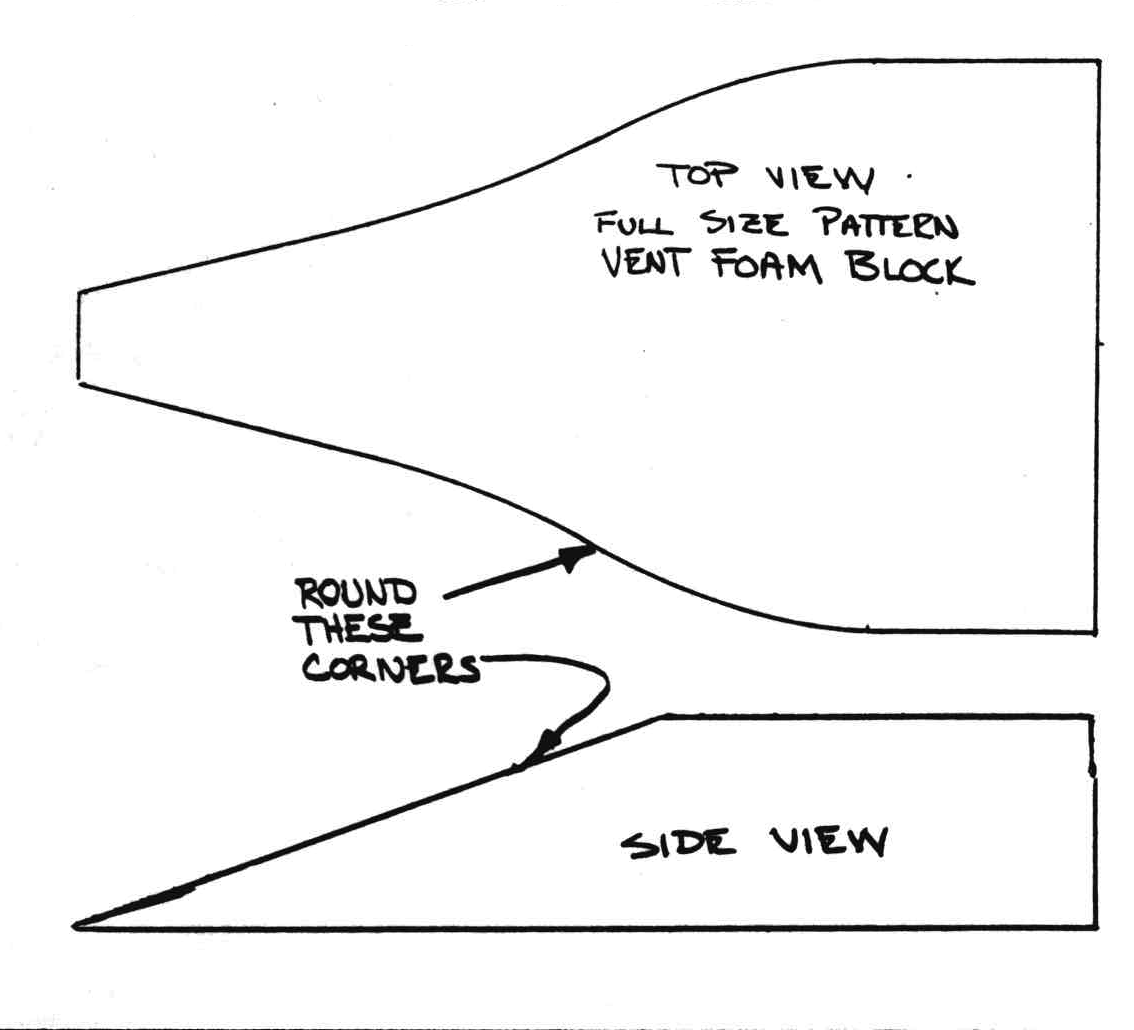 TOP VIEW
FULL SIZE PATTERN
VENT FOAM BLOCK
ROUND
THESE
CORNERS
SIDE VIEW